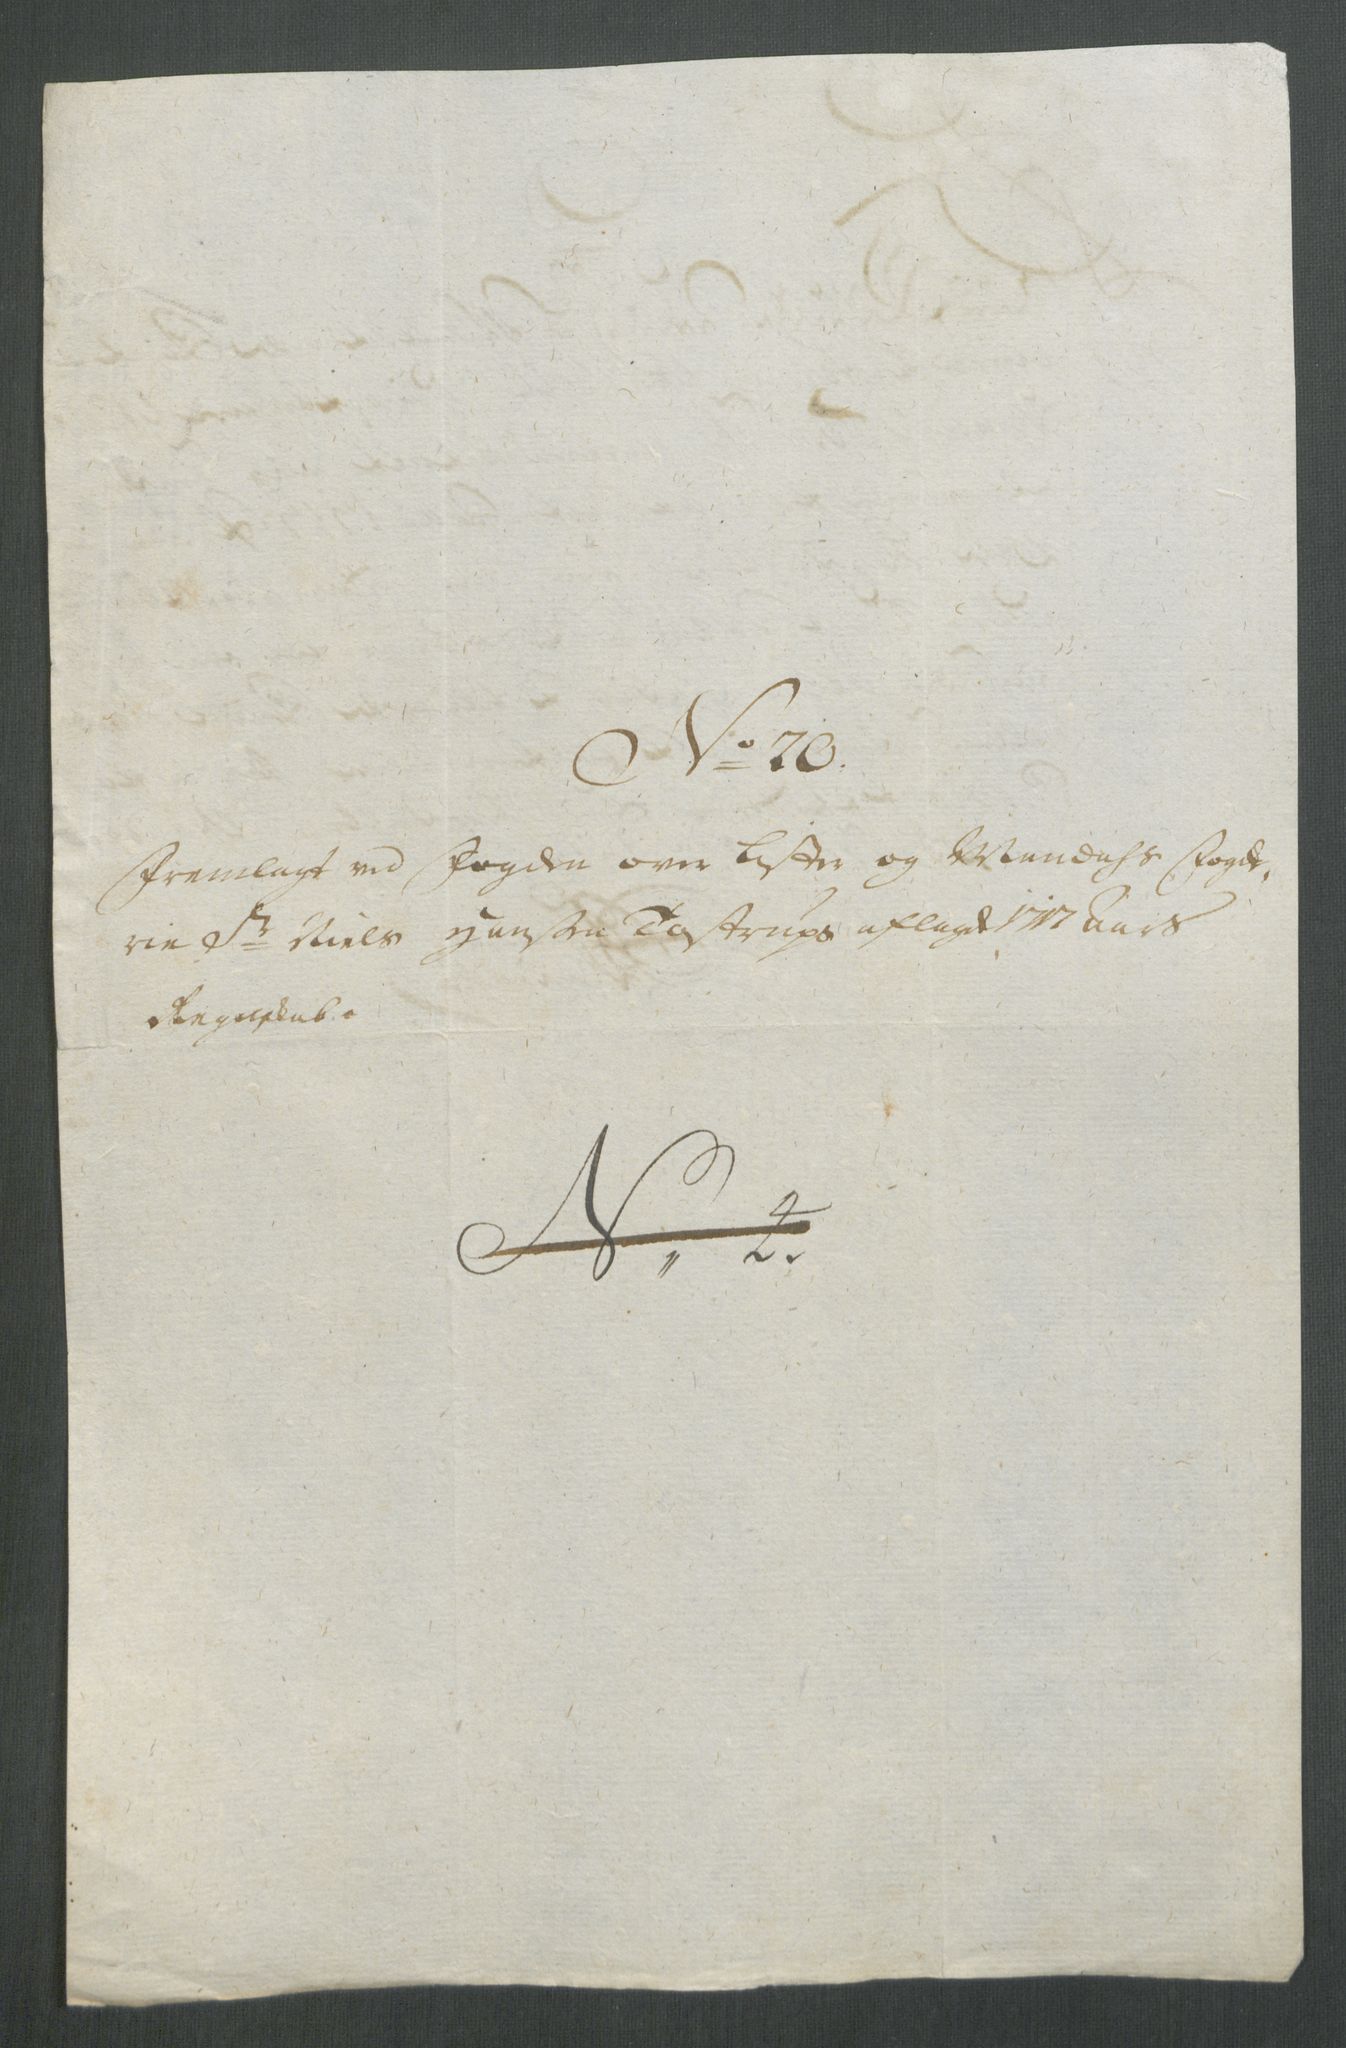 No 20.
Fremlagt ved Fogden over Lister og Mandahls Fogde,
rie Sr Niels Hansen Tostrups aflagde 1717 Aars
Regnskab.
N„ 2.